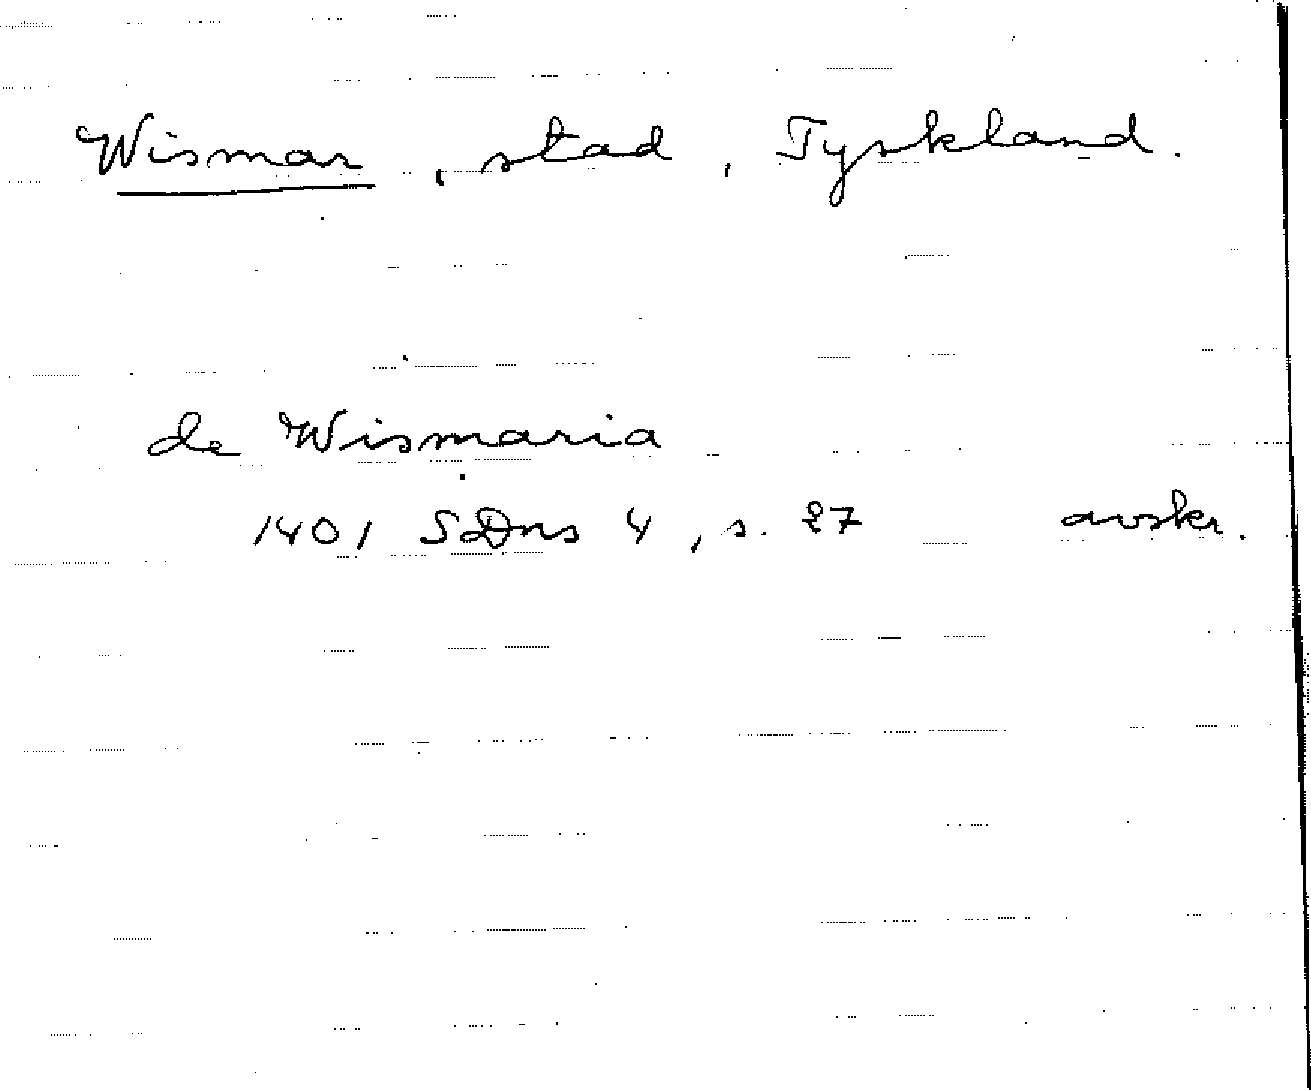 Wismar, stad, Tyskland.
de Wismaria
1401 SDns 4, s. 27 avskr.